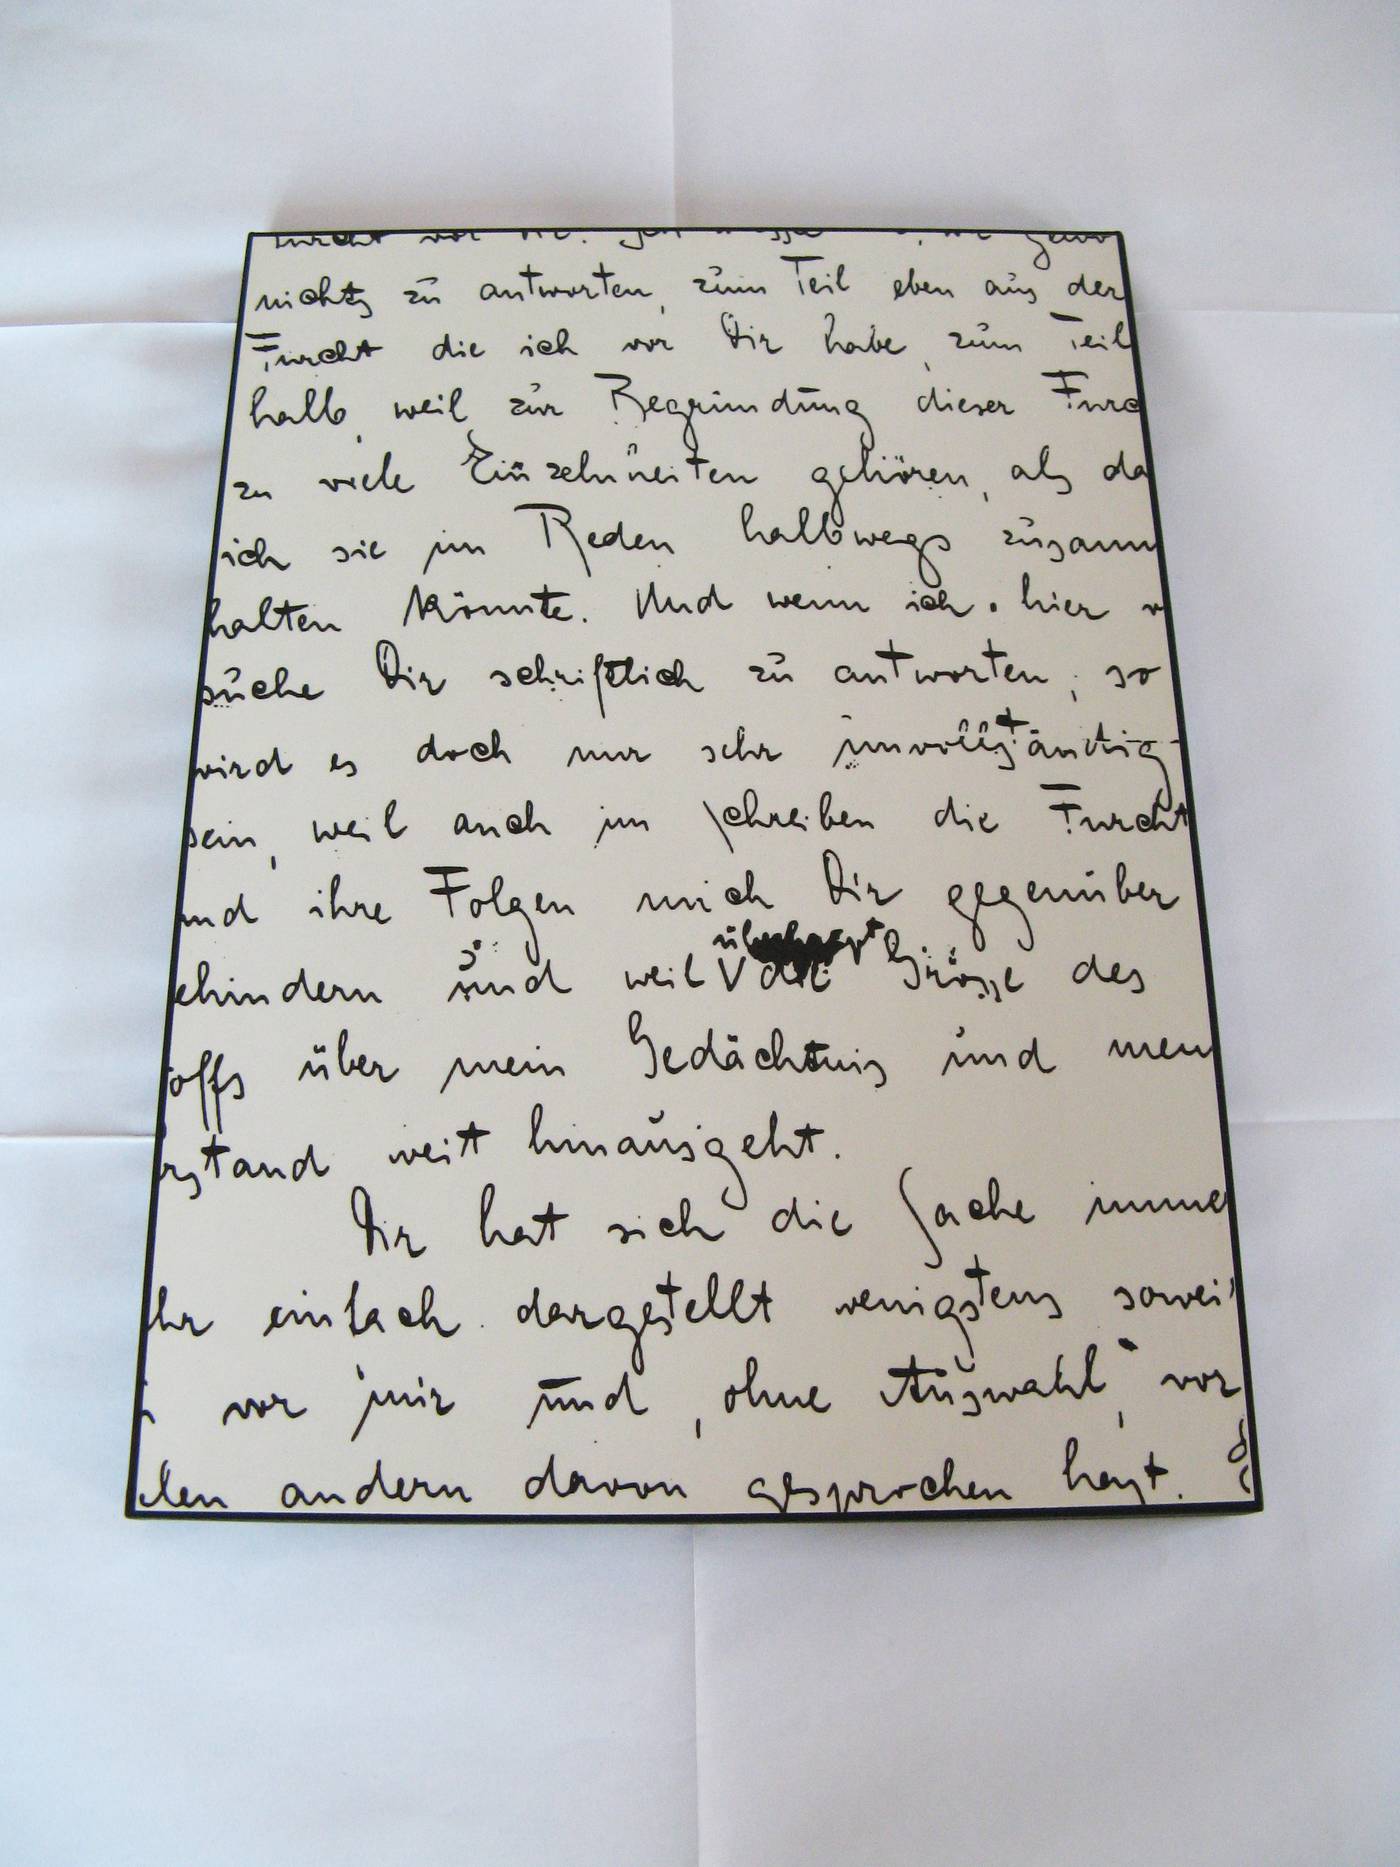 Furcht vor Dir. Ich
nichts zu antworten, zum Teil eben aus der
Furcht die ich vor Dir habe, zum Teil
halb, weil zur Begründung dieser Furc
zu viele Einzelnheiten gehören, als da
ich sie im Reden halbwegs zusamm
halten könnte. Und wenn ich hier v
suche Dir schriftlich zu antworten, so
wird es doch nur sehr unvollständig
sein, weil auch im Schreiben die Furcht
und ihre Folgen mich Dir gegenüber
ehindern und weil überhaupt die Grösse des
offs über mein Gedächtnis und mein
rstand weit hinausgeht.
Dir hat sich die Sache imme
hr einfach dargestellt wenigstens soweit
vor mir und, ohne Auswahl, vor
len andern davon gesprochen hast.